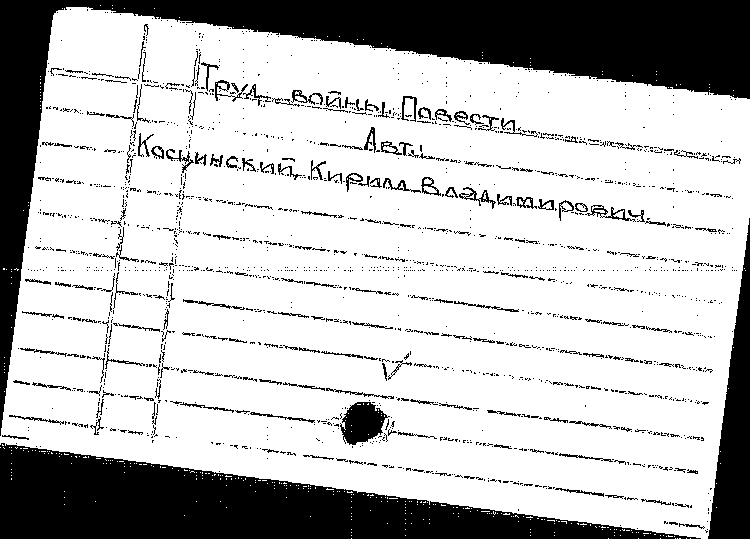 Труд войны. Повести.
Авт.:
Косцинский, Кирилл Владимирович.